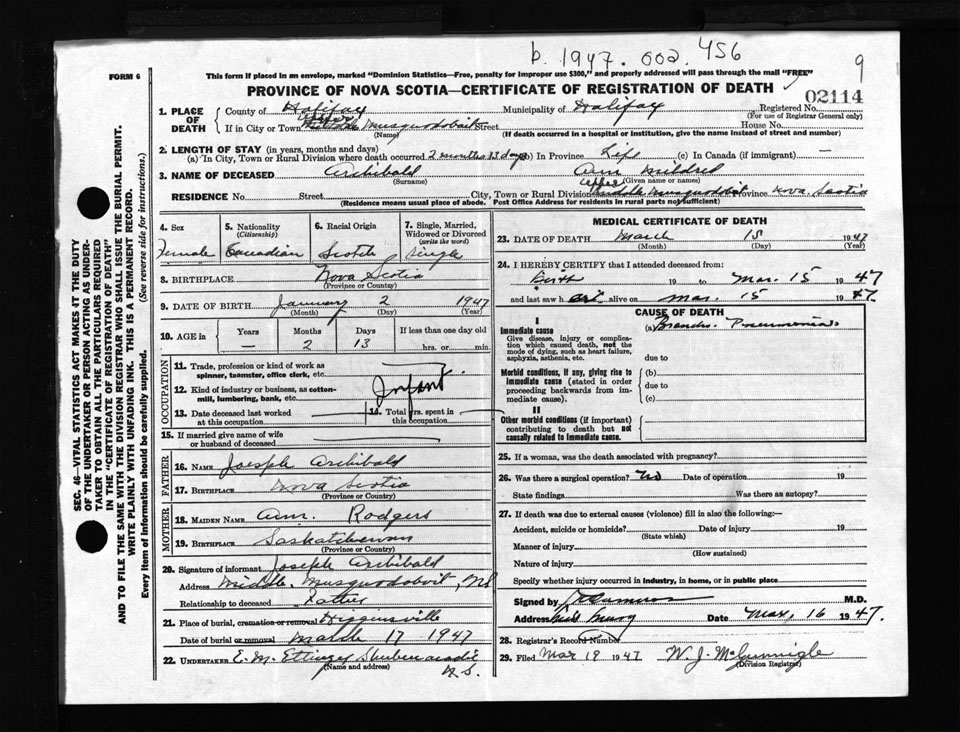 b. 1947. 002. 456
9
FORM 6
This form if placed in an envelope, marked "Dominion Statistics—Free, penalty for improper use $300," and properly addressed will pass through the mail "FREE"
PROVINCE OF NOVA SCOTIA—CERTIFICATE OF REGISTRATION OF DEATH
02114
1. PLACE OF DEATH
County of Halifax Municipality of Halifax Registered No.
(For use of Registrar General only)
If in City or Town Upper Middle Musquodoboit Street House No.
(Name) (If death occurred in a hospital or institution, give the name instead of street and number)
2. LENGTH OF STAY (in years, months and days)
(a) In City, Town or Rural Division where death occurred 2 months 13 days (b) In Province Life (c) In Canada (if immigrant) —
3. NAME OF DECEASED Archibald Ann Mildred
(Surname) (Given name or names)
RESIDENCE No. Street City, Town or Rural Division Upper Middle Musquodoboit Province Nova Scotia
(Residence means usual place of abode. Post Office Address for residents in rural parts not sufficient)
4. Sex
Female
5. Nationality
(Citizenship)
Canadian
6. Racial Origin
Scotch
7. Single, Married, Widowed or Divorced
(write the word)
Single
8. BIRTHPLACE Nova Scotia
(Province or Country)
9. DATE OF BIRTH January 2 1947
(Month) (Day) (Year)
10. AGE in Years Months Days If less than one day old
— 2 13 hrs. or min.
OCCUPATION
11. Trade, profession or kind of work as spinner, teamster, office clerk, etc.
12. Kind of industry or business, as cotton-mill, lumbering, bank, etc.
Infant
13. Date deceased last worked at this occupation
14. Total yrs. spent in this occupation
15. If married give name of wife or husband of deceased
FATHER
16. NAME Joesph Archibald
17. BIRTHPLACE Nova Scotia
(Province or Country)
MOTHER
18. MAIDEN NAME Ann. Rodgers
19. BIRTHPLACE Saskatchewan
(Province or Country)
20. Signature of informant Joseph Archibald
Address Middle Musquodoboit, NS
Relationship to deceased Father
21. Place of burial, cremation or removal Higginsville
Date of burial or removal March 17 1947
22. UNDERTAKER E. M. Ettinger Shubenacadie
(Name and address) N.S.
MEDICAL CERTIFICATE OF DEATH
23. DATE OF DEATH March 15 1947
(Month) (Day) (Year)
24. I HEREBY CERTIFY that I attended deceased from:
Birth 19 to Mar. 15 1947
and last saw h er alive on Mar. 15 1947.
CAUSE OF DEATH
I
Immediate cause
Give disease, injury or complication which caused death, not the mode of dying, such as heart failure, asphyxia, asthenia, etc.
(a) Broncho. Pneumonia
due to
Morbid conditions, if any, giving rise to immediate cause (stated in order proceeding backwards from immediate cause).
(b)
due to
(c)
II
Other morbid conditions (if important) contributing to death but not causally related to immediate cause.
25. If a woman, was the death associated with pregnancy?
26. Was there a surgical operation? No Date of operation 19
State findings Was there an autopsy?
27. If death was due to external causes (violence) fill in also the following:—
Accident, suicide or homicide? Date of injury 19
(State which)
Manner of injury
(How sustained)
Nature of injury
Specify whether injury occurred in industry, in home, or in public place
Signed by M.D.
Address Date Mar, 16 1947.
28. Registrar's Record Number
29. Filed Mar 19 1947 W. J. McGunnigle
(Division Registrar)
SEC. 46—VITAL STATISTICS ACT MAKES IT THE DUTY
OF THE UNDERTAKER OR PERSON ACTING AS UNDER-
TAKER TO OBTAIN ALL THE PARTICULARS REQUIRED
IN THE "CERTIFICATE OF REGISTRATION OF DEATH"
AND TO FILE THE SAME WITH THE DIVISION REGISTRAR WHO SHALL ISSUE THE BURIAL PERMIT.
WRITE PLAINLY WITH UNFADING INK. THIS IS A PERMANENT RECORD.
Every item of information should be carefully supplied. (See reverse side for instructions.)